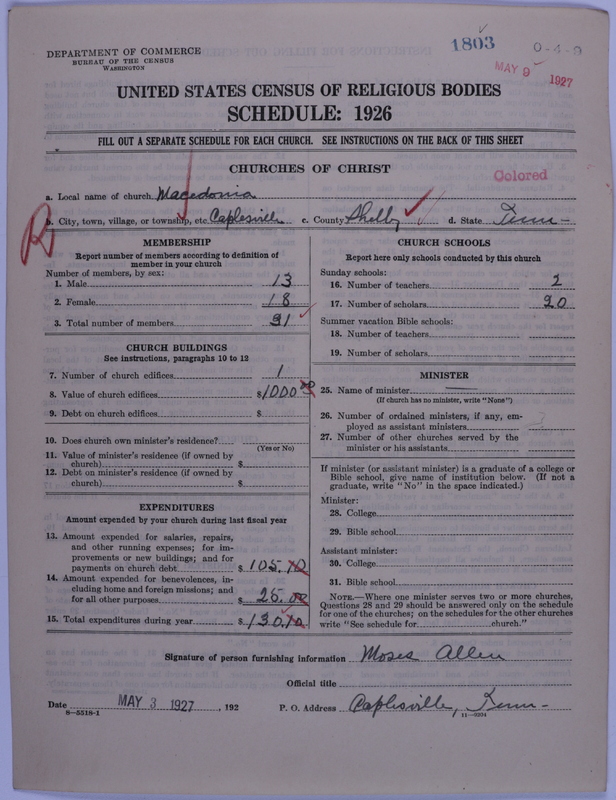 DEPARTMENT OF COMMERCE
BUREAU OF THE CENSUS
WASHINGTON
1803
MAY 9 1927
UNITED STATES CENSUS OF RELIGIOUS BODIES
SCHEDULE: 1926
FILL OUT A SEPARATE SCHEDULE FOR EACH CHURCH. SEE INSTRUCTIONS ON THE BACK OF THIS SHEET
CHURCHES OF CHRIST
Colored
a. Local name of church Macedonia
R
b. City, town, village, or township, etc. Caplesville c. County Shelby d. State Tenn-
MEMBERSHIP
Report number of members according to definition of
member in your church
Number of members, by sex:
1. Male 13
2. Female 18
3. Total number of members 31
CHURCH BUILDINGS
See instructions, paragraphs 10 to 12
7. Number of church edifices 1
8. Value of church edifices $1000 00
9. Debt on church edifices $
10. Does church own minister's residence?
(Yes or No)
11. Value of minister's residence (if owned by
church) $
12. Debt on minister's residence (if owned by
church) $
EXPENDITURES
Amount expended by your church during last fiscal year
13. Amount expended for salaries, repairs,
and other running expenses; for im-
provements or new buildings; and for
payments on church debt $ 105.10
14. Amount expended for benevolences, in-
cluding home and foreign missions; and
for all other purposes $ 25.00
15. Total expenditures during year $ 130.10
CHURCH SCHOOLS
Report here only schools conducted by this church
Sunday schools:
16. Number of teachers 2
17. Number of scholars 20
Summer vacation Bible schools:
18. Number of teachers
19. Number of scholars
MINISTER
25. Name of minister
(If church has no minister, write "None")
26. Number of ordained ministers, if any, em-
ployed as assistant ministers
27. Number of other churches served by the
minister or his assistants
If minister (or assistant minister) is a graduate of a college or
Bible school, give name of institution below. (If not a
graduate, write "No" in the space indicated.)
Minister:
28. College
29. Bible school
Assistant minister:
30. College
31. Bible school
NOTE.—Where one minister serves two or more churches,
Questions 28 and 29 should be answered only on the schedule
for one of the churches; on the schedules for the other churches
write "See schedule for church."
Signature of person furnishing information Moses Allen
Official title
Date MAY 3 1927, 192 P. O. Address Caplesville, Tenn-
8—5518-1 11—9204